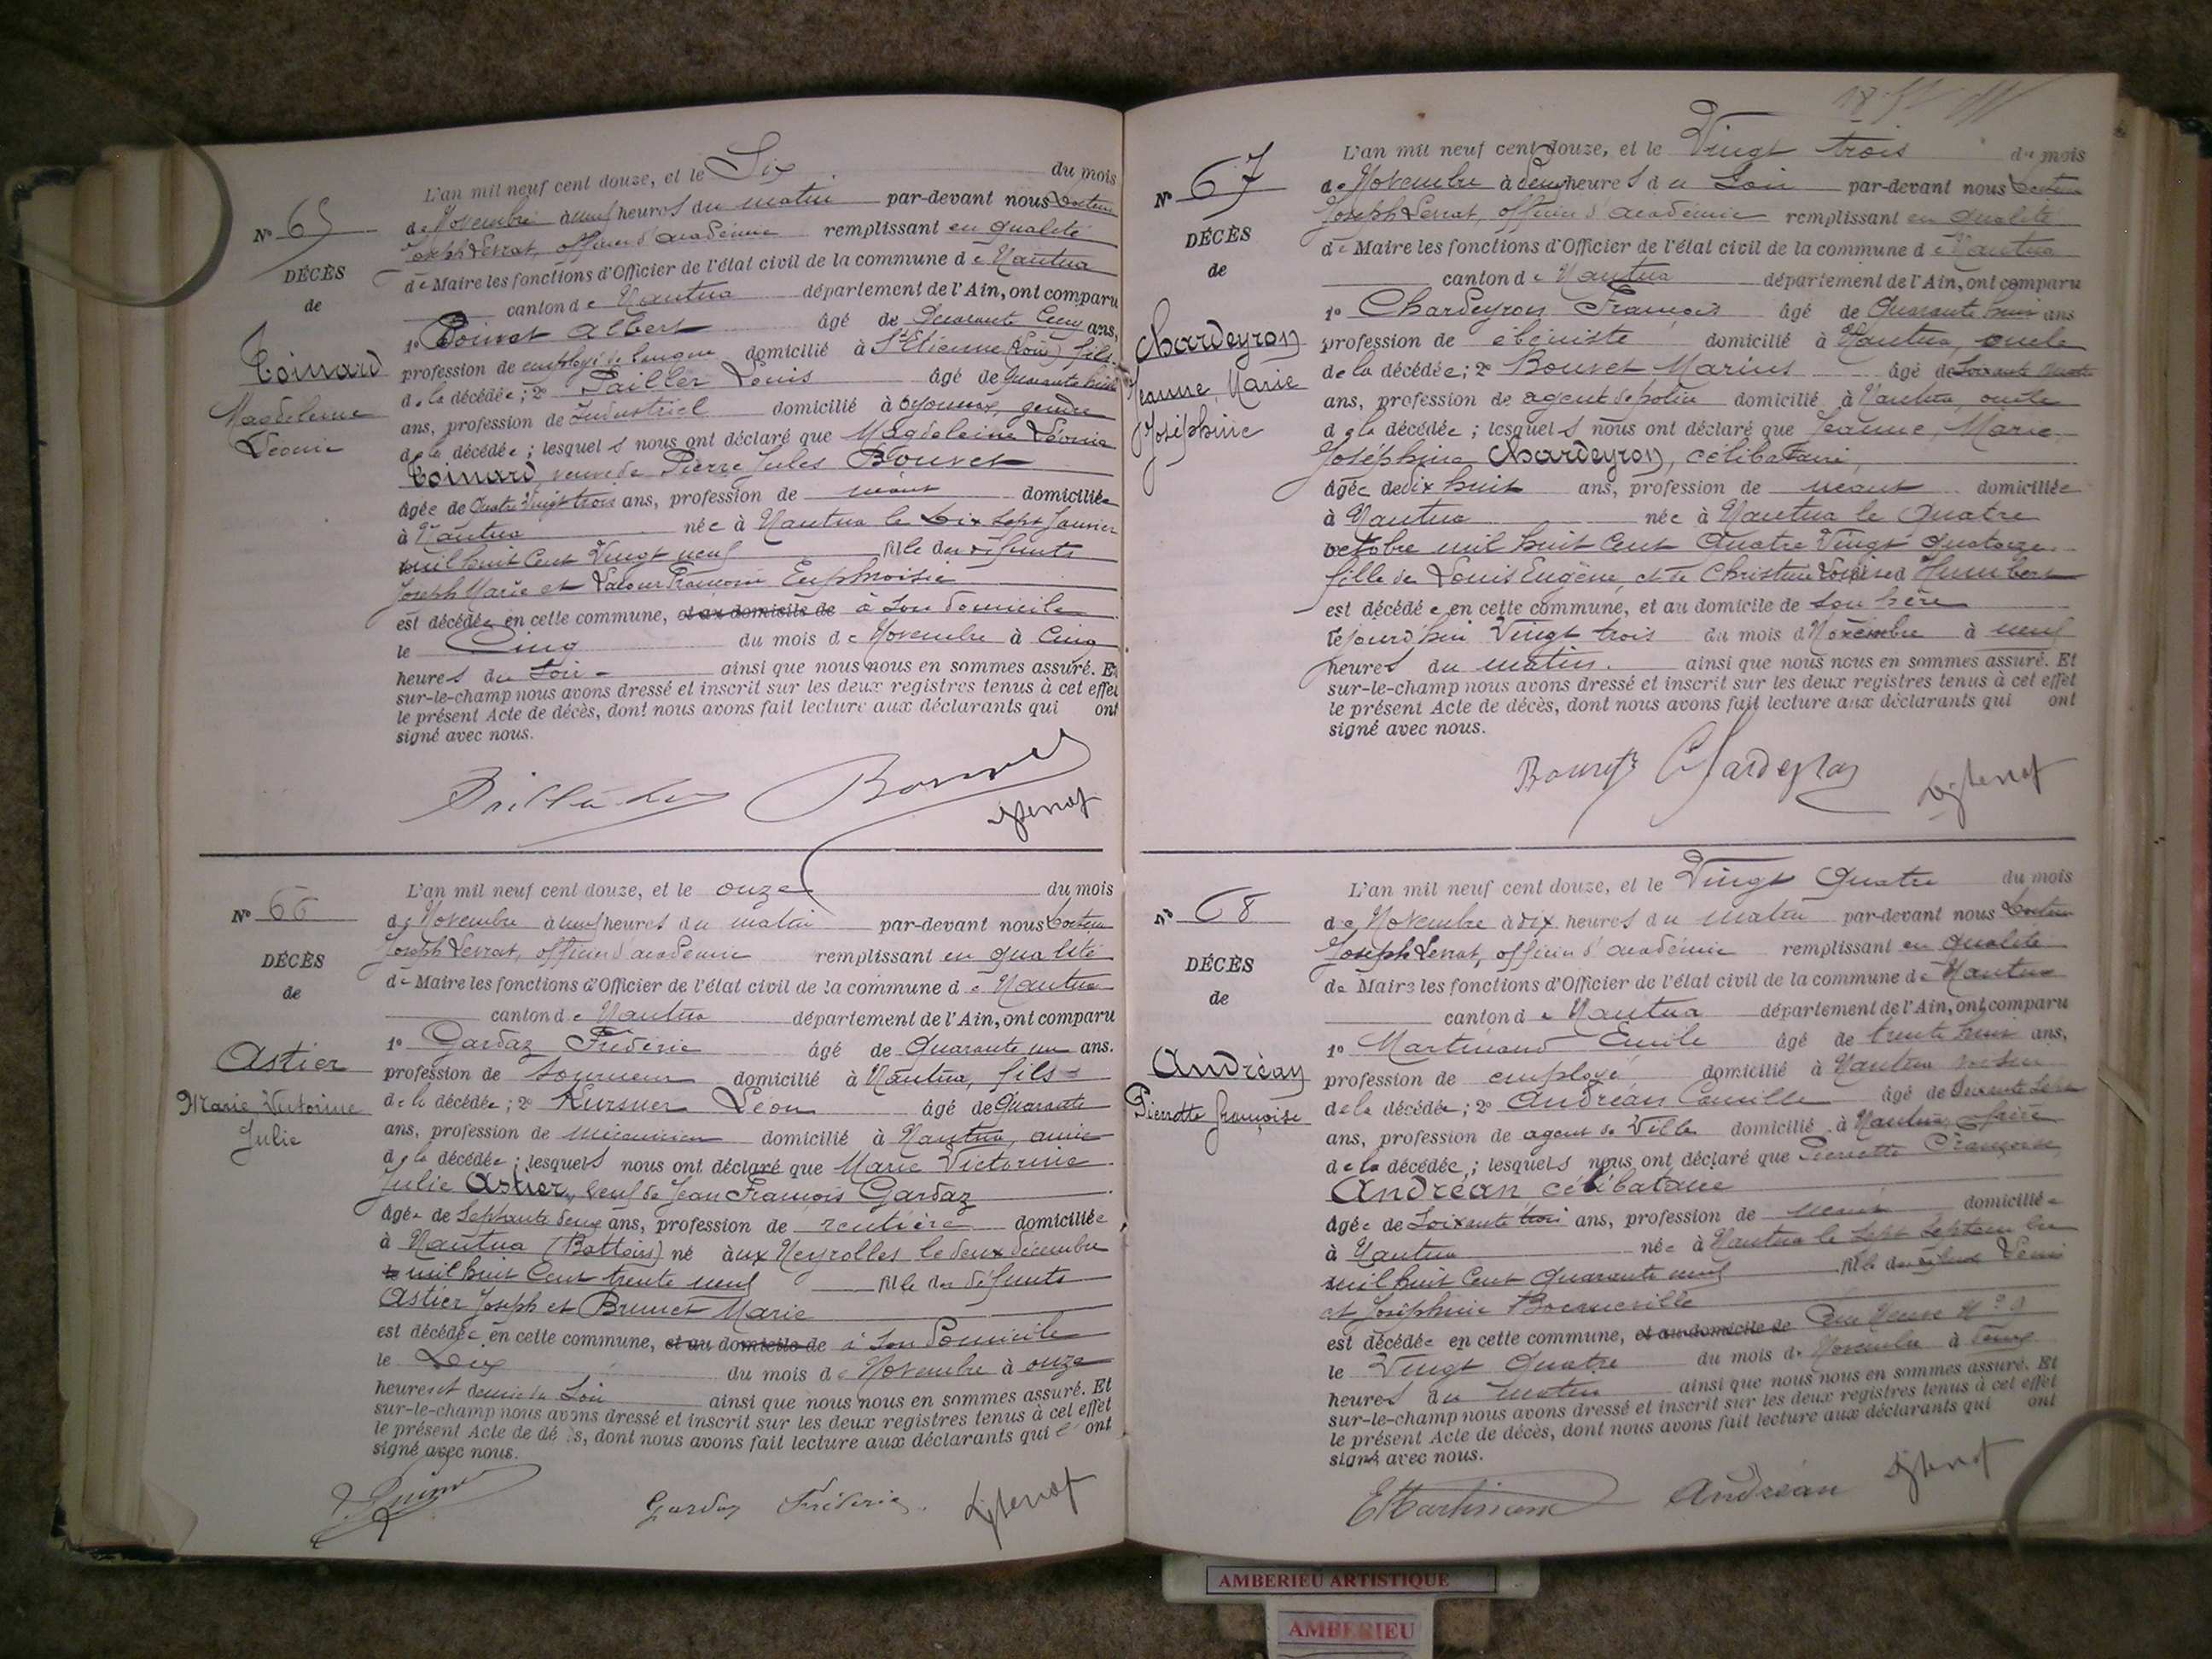 L'an mil neuf cent douze, et le Six du mois
Nº 65
de Novembre à neuf heures du matin par-devant nous Docteur
Joseph Levrat, officier d'académie remplissant en qualité
DÉCÈS
de Maire les fonctions d'Officier de l'état civil de la commune de Nantua
de
canton de Nantua département de l'Ain, ont comparu
1º Bouvet Albert âgé de Quarante Cinq ans,
Toinard
profession de employé de banque domicilié à St Etienne (Loire) fils
Magdeleine
de la décédée; 2º Pailler Louis âgé de Quarante huit
ans, profession de Industriel domicilié à Oyonnax, gendre
Léonie
de la décédée; lesquels nous ont déclaré que Magdeleine Léonie
Toinard, veuve de Pierre Jules Bouvet
âgée de Quatre Vingt trois ans, profession de néant domiciliée
à Nantua née à Nantua le Dix Sept Janvier
mil huit Cent Vingt neuf fille des défunts
Joseph Marie et Françoise Euphroisie
est décédée en cette commune, et au domicile de à Son domicile
le Cinq du mois de Novembre à Cinq
heures du Soir ainsi que nous nous en sommes assuré. Et
sur-le-champ nous avons dressé et inscrit sur les deux registres tenus à cet effet
le présent Acte de décès, dont nous avons fait lecture aux déclarants qui ont
signé avec nous.
Bouvet
L'an mil neuf cent douze, et le onze du mois
Nº 66
de Novembre à neuf heures du matin par-devant nous Docteur
Joseph Levrat, officier d'académie remplissant en qualité
DÉCÈS
de Maire les fonctions d'Officier de l'état civil de la commune de Nantua
de
canton de Nantua département de l'Ain, ont comparu
1º Gardaz Fréderic âgé de Quarante un ans.
Astier
profession de tourneur domicilié à Nantua, fils
Marie Victorine
de la décédée; 2º Kursner Léon âgé de Quarante
Julie
ans, profession de mécanicien domicilié à Nantua, amie
de la décédée; lesquels nous ont déclaré que Marie Victorine
Julie Astier, veuf de Jean François Gardaz
âgée de Septante deux ans, profession de rentière domiciliée
à Nantua (Battoirs) né aux Neyrolles le deux décembre
mil huit Cent trente neuf fille des défunts
Astier Joseph et Brunet Marie
est décédée en cette commune, et au domicile de à Son Domicile
le Dix du mois de Novembre à onze
heures et demie du Soir ainsi que nous nous en sommes assuré. Et
sur-le-champ nous avons dressé et inscrit sur les deux registres tenus à cet effet
le présent Acte de décès, dont nous avons fait lecture aux déclarants qui ont
signé avec nous.
Gardaz Fréderic
L'an mil neuf cent douze, et le Vingt trois du mois
Nº 67
de Novembre à deux heures du Soir par-devant nous Docteur
Joseph Levrat, officier d'académie remplissant en qualité
DÉCÈS
de Maire les fonctions d'Officier de l'état civil de la commune de Nantua
de
canton de Nantua département de l'Ain, ont comparu
1º Chardeyron François âgé de Quarante huit ans
Chardeyron
profession de ébéniste domicilié à Nantua, oncle
Jeanne, Marie
de la décédée; 2º Bouvet Marius âgé de Soixante Quatre
ans, profession de agent de police domicilié à Nantua, oncle
Joséphine
de la décédée; lesquels nous ont déclaré que Jeanne, Marie
Joséphine Chardeyron, célibataire,
âgée de dix huit ans, profession de néant domiciliée
à Nantua née à Nantua le Quatre
octobre mil huit Cent Quatre Vingt quatorze
fille de Louis Eugène et de Christine Louise Humbert
est décédée en cette commune, et au domicile de son père
cejourd'hui Vingt trois du mois de Novembre à neuf
heures du matin. ainsi que nous nous en sommes assuré. Et
sur-le-champ nous avons dressé et inscrit sur les deux registres tenus à cet effet
le présent Acte de décès, dont nous avons fait lecture aux déclarants qui ont
signé avec nous.
Bouvet Chardeyron
L'an mil neuf cent douze, et le Vingt Quatre du mois
Nº 68
de Novembre à dix heures du matin par-devant nous Docteur
Joseph Levrat, officier d'académie remplissant en qualité
DÉCÈS
de Maire les fonctions d'Officier de l'état civil de la commune de Nantua
de
canton de Nantua département de l'Ain, ont comparu
1º Martinand Emile âgé de trente huit ans,
Andréan
profession de employé domicilié à Nantua voisin
Pierrette françoise
de la décédée; 2º Andréan Camille âgé de
ans, profession de agent de Ville domicilié à Nantua, frère
de la décédée; lesquels nous ont déclaré que Pierrette Françoise
Andréan célibataire
âgée de Soixante trois ans, profession de néant domiciliée
à Nantua née à Nantua le Sept Septembre
mil huit Cent Quarante neuf fille des défunts Denis
et Joséphine
est décédée en cette commune, et au domicile de Rue Neuve Nº 9
le Vingt Quatre du mois de Novembre à
heures du matin ainsi que nous nous en sommes assuré. Et
sur-le-champ nous avons dressé et inscrit sur les deux registres tenus à cet effet
le présent Acte de décès, dont nous avons fait lecture aux déclarants qui ont
signé avec nous.
EMartinand Andréan
AMBERIEU ARTISTIQUE
AMBERIEU